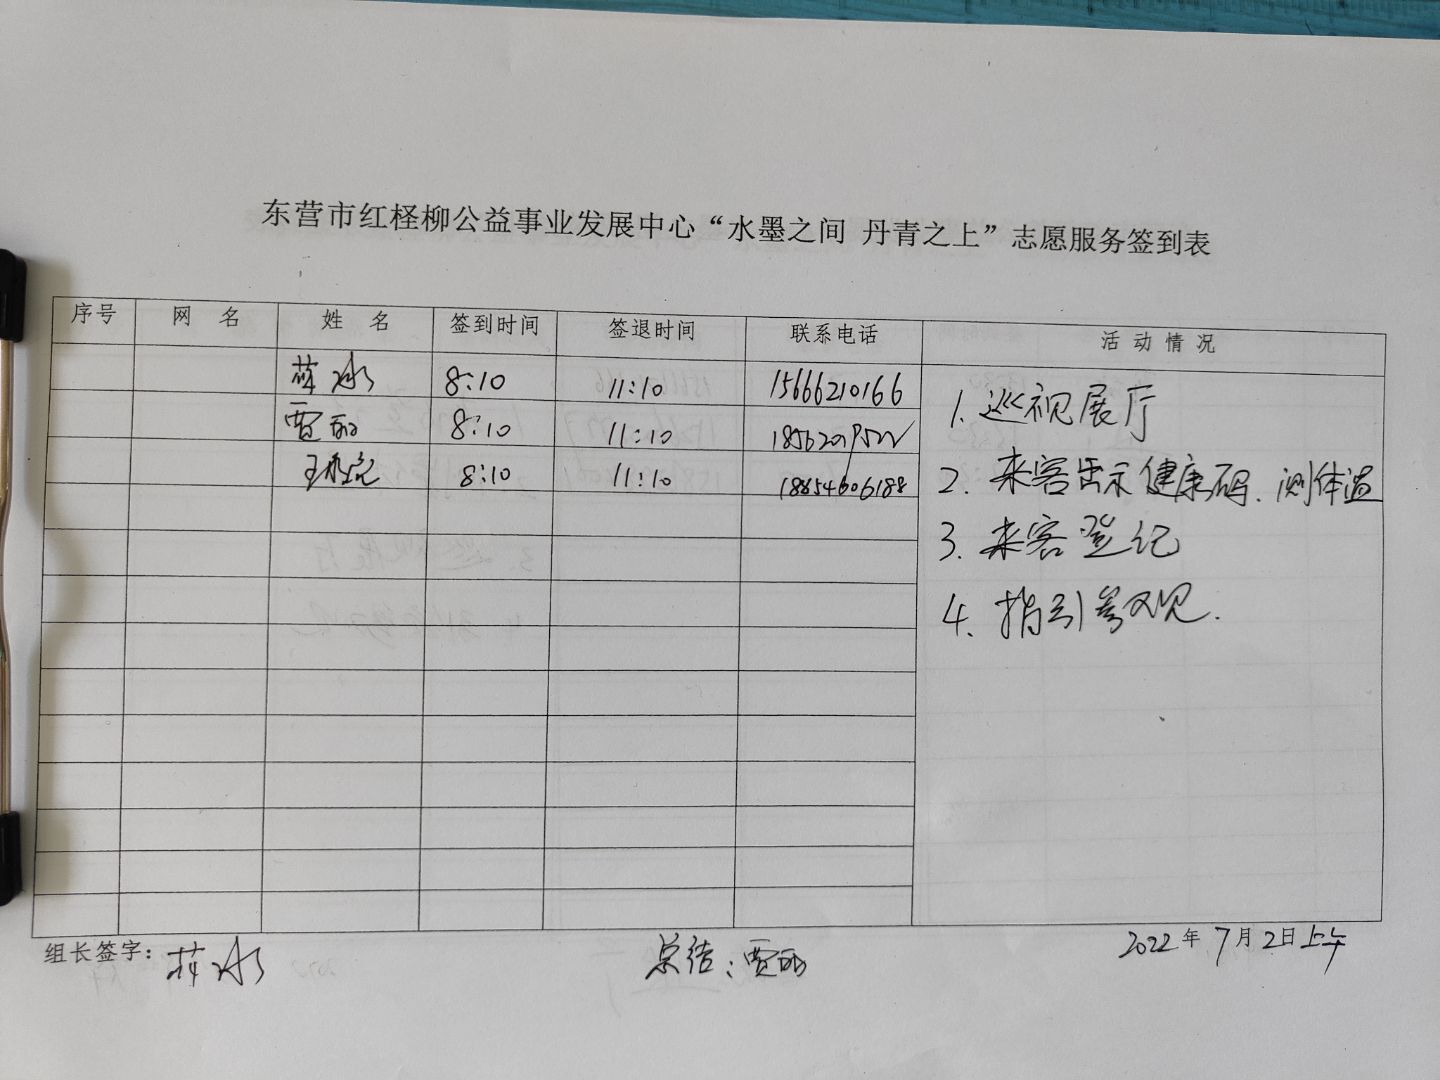 东营市红柽柳公益事业发展中心“水墨之间 丹青之上”志愿服务签到表
序号 网 名 姓 名 签到时间 签退时间 联系电话 活动情况
薛冰 8:10 11:10 15666210166
贾丽 8:10 11:10
8:10 11:10 18854606188
1. 巡视展厅
2. 来客出示健康码、测体温
3. 来客登记
4. 指引参观.
组长签字：薛冰 总结：贾丽 2022年7月2日上午